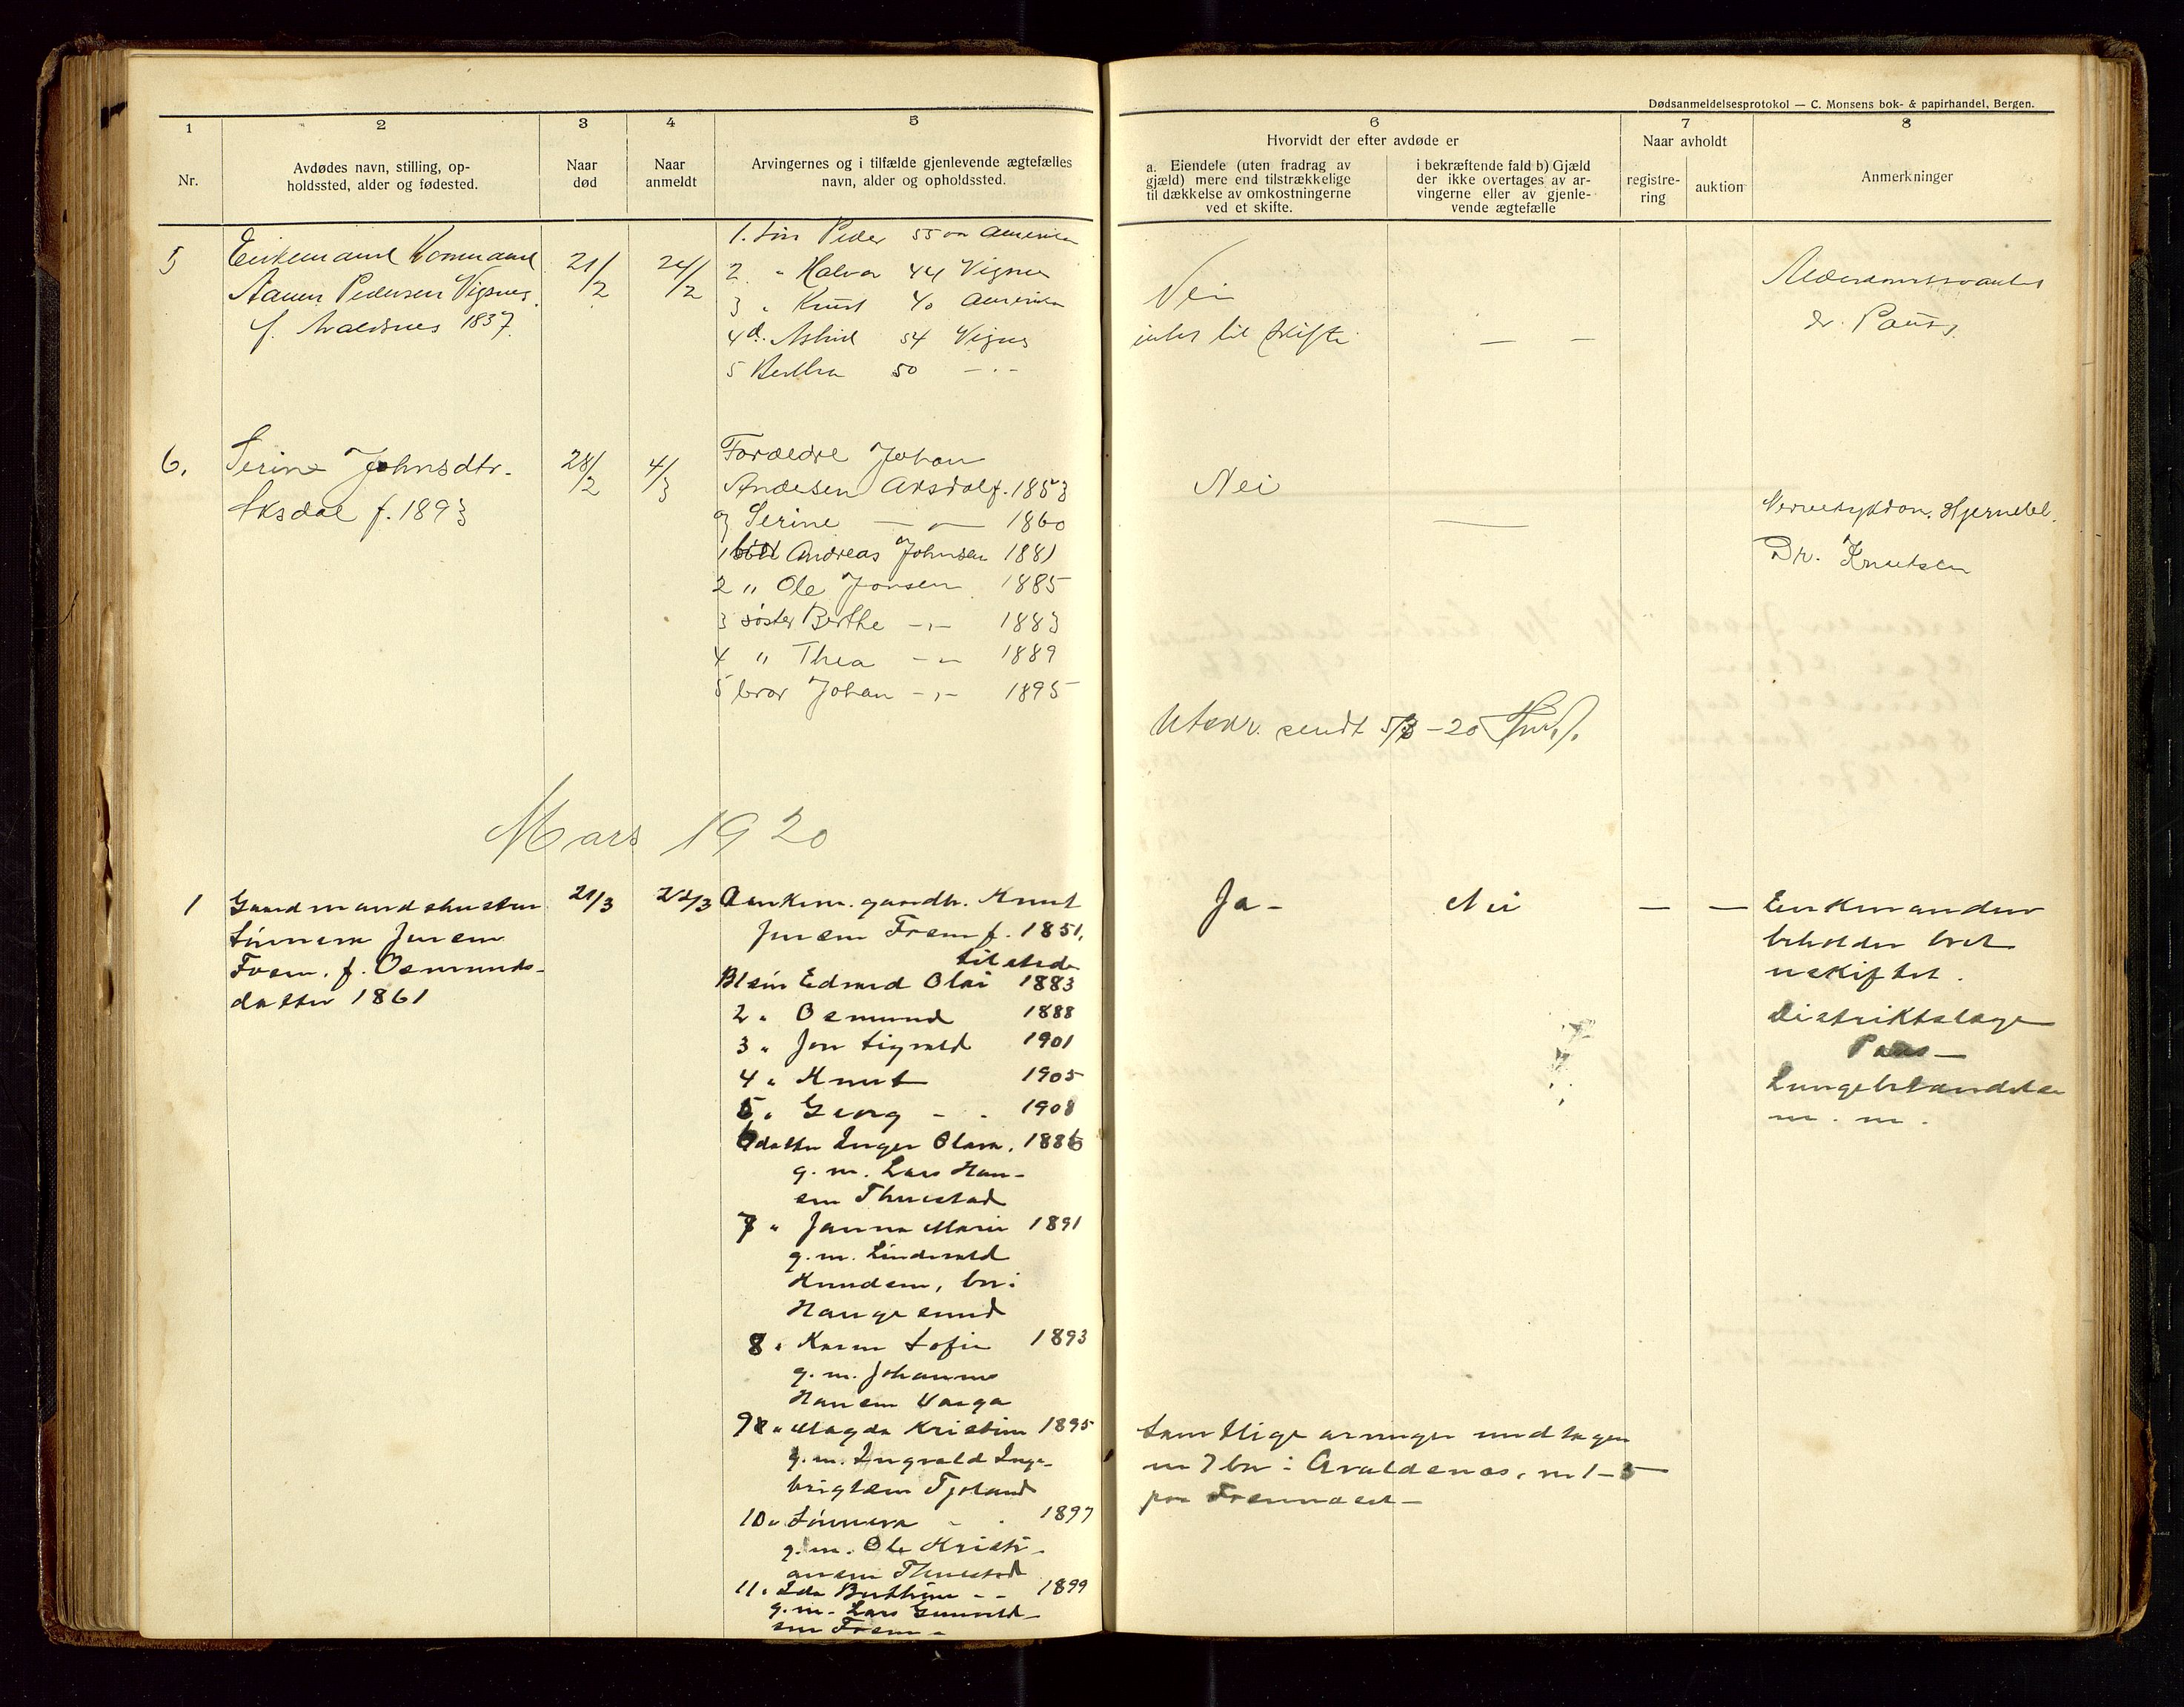 Dødsanmeldelsesprotokol — C. Monsens bok- & papirhandel, Bergen.
1
2
3
4
5
6
7
8
Nr.
Avdødes navn, stilling, op-
holdssted, alder og fødested.
Naar
død
Naar
anmeldt
Arvingernes og i tilfælde gjenlevende ægtefælles
navn, alder og opholdssted.
Hvorvidt der efter avdøde er
a. Eiendele (uten fradrag av
gjæld) mere end tilstrækkelige
til dækkelse av omkostningerne
ved et skifte.
i bekræftende fald b) Gjæld
der ikke overtages av ar-
vingerne eller av gjenle-
vende ægtefælle
Naar avholdt
registre-
ring
auktion
Anmerkninger
5
Enkemand
Pedersen Vigsnes
f. Avaldsnes 1837
21/2
24/2
1. Søn Peder 55 aar Amerika
2 " Halvor 44 Vignes
3 " Knut 40 Amerika
4 d. Astrid 54 Vignes
5 Bertha 50 — " —
Nei
intet til skifte
— —
dr. Pauss.
6.
Serine Johnsdtr.
Aksdal f. 1893
28/2
4/3
Forældre Johan
Andesen Aksdal f. 1853
og Serine — " — 1860
1 Andreas Johnsen 1881
2 " Ole Jonsen 1885
3 søster Berthe — " — 1883
4 " Thea — " — 1889
5 bror Johan — " — 1895
Nei
—
Nervesygdom, Hjernebl.
Dr. Knutsen
Utskr. sendt 5/3 - 20
Mars 1920
1
Gaardmandshustru
Sønneva Jensen
Fræen. f. Osmunds-
datter 1861
21/3
22/3
Enkem. gaardbr. Knut
Jensen Fræen f. 1851,
tilstede
B 1 søn Edvard Olai 1883
2 " Osmund 1888
3 " Jon Sigvald 1901
4 " Knut 1905
5 " Georg - - 1908
6 datter Inger Olava, 1886
g. m. Lars Han-
sen Thuestad
7 " Janna Marie 1891
g. m. Lindevald
Knudsen, bor i
Haugesund
8 " Karen Sofie 1893
g. m. Johannes
Hansen Varga
9 " Magda Kristine 1895
g. m. Ingvald Inge-
brigtsen Tjoland
10 " Sønneva - - 1897
g. m. Ole Kristi-
ansen Thuestad
11 " Ida Berthine - - 1899
g. m. Lars Gunvald-
sen Fræen -
Ja -
Nei
— —
Enkemanden
beholder boet
uskiftet.
Distriktslæge
Paus —
Lungebetændelse
m. m.
Samtlige arvinger undtagen
nr 7 bor i Avaldsnes, nr 1 - 5
paa Frennæset —